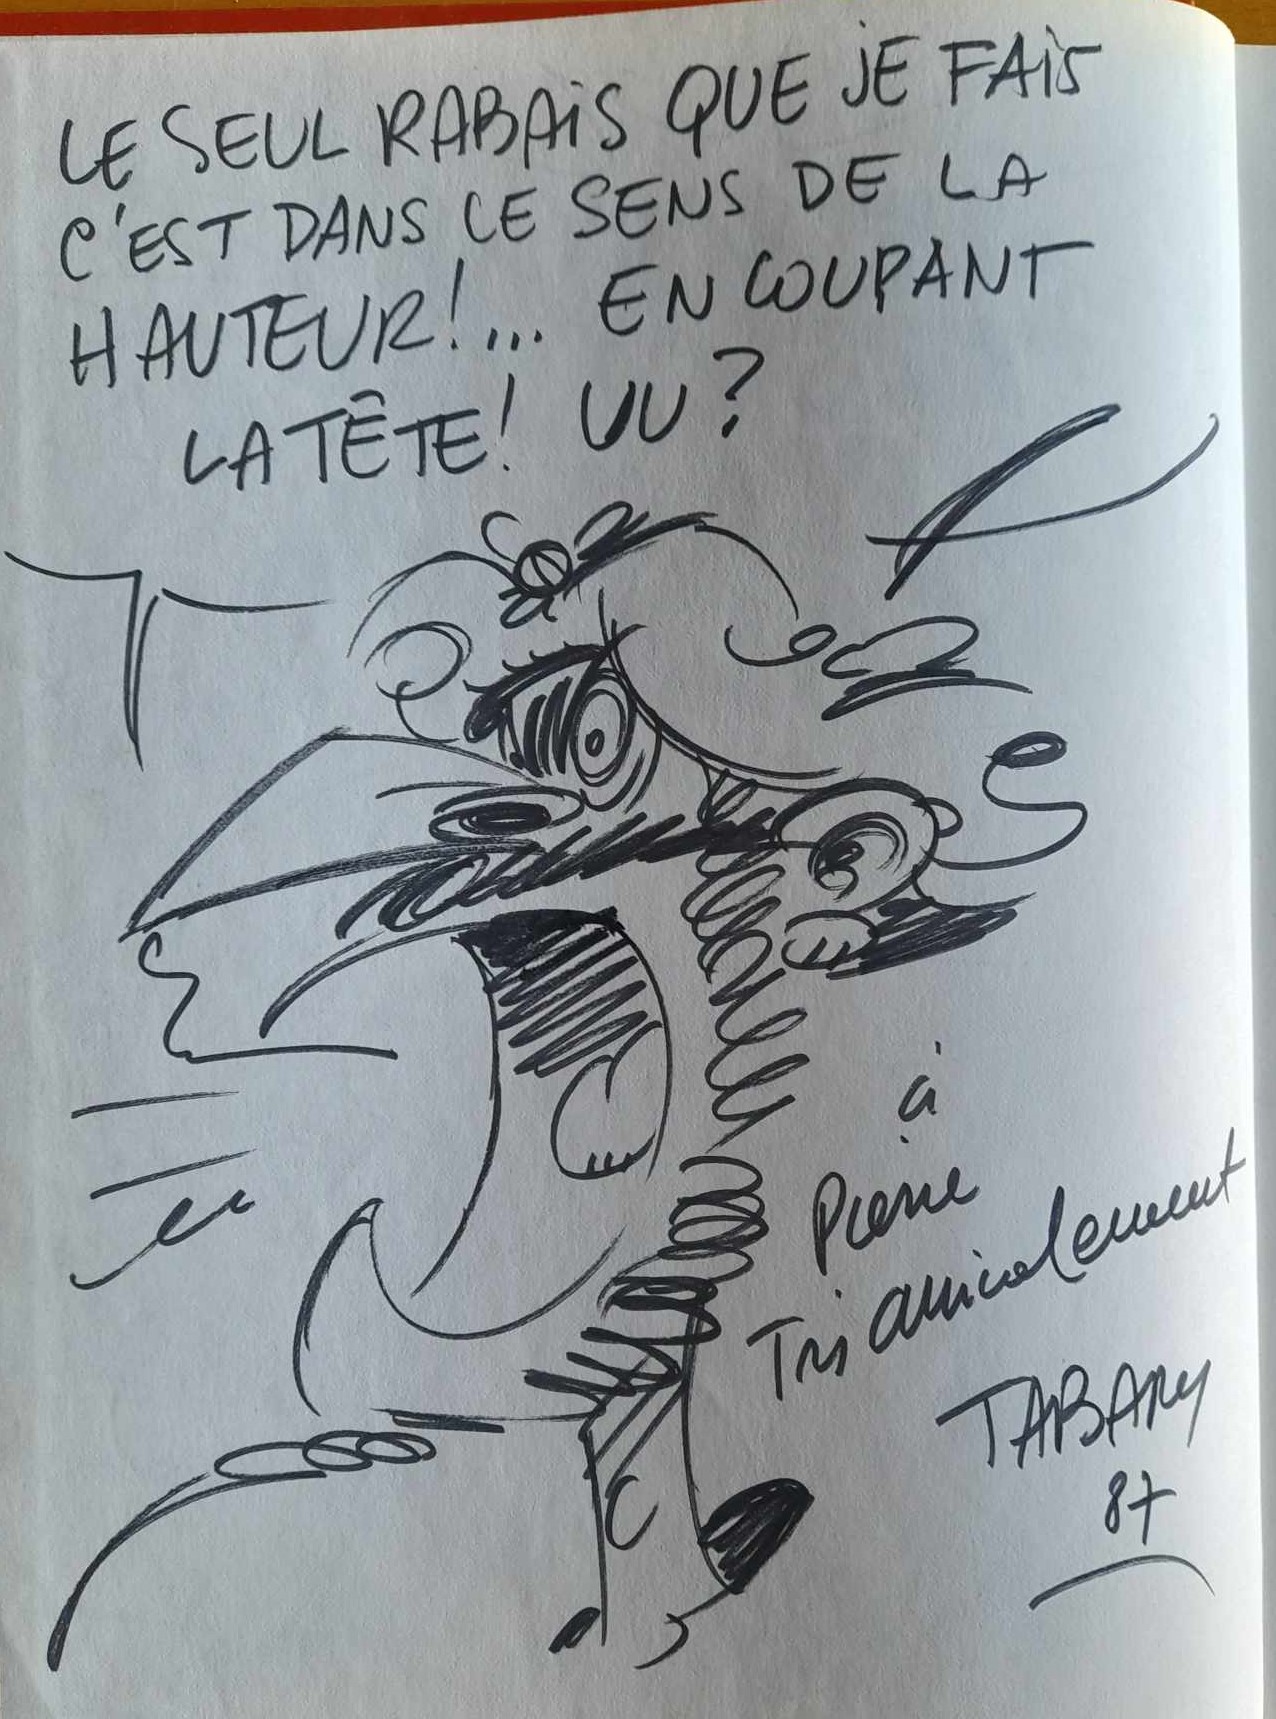 LE SEUL RABAIS QUE JE FAIS
C'EST DANS LE SENS DE LA
HAUTEUR!... EN COUPANT
LA TÊTE! VU?
à
Pierre
Tris amicalement
TABARY
87